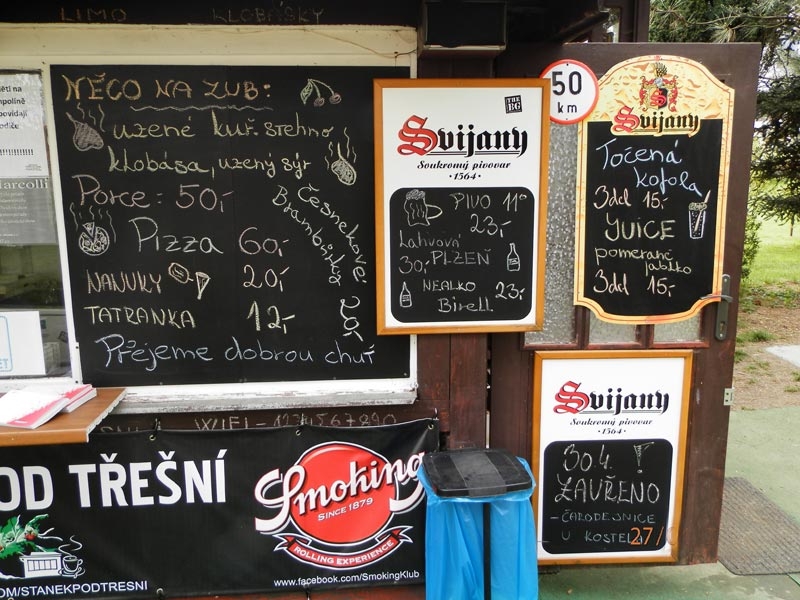 LIMO KLOBÁSKY
NĚCO NA ZUB:
uzené kuř. stehno
klobása, uzený sýr
Porce = 50,-
Pizza 60,-
NANUKY 20,-
TATRANKA 12,-
Česnekové
Brambůrky 20,-
Přejeme dobrou chuť
WIFI - 1234567890
OD TŘEŠNÍ
.COM/STANEKPODTRESNI
Smoking
SINCE 1879
ROLLING EXPERIENCE
www.facebook.com/SmokingKlub
THE BG
Svijany
Soukromý pivovar
· 1564 ·
PIVO 11°
23,-
Lahvová
30,- PLZEŇ
NEALKO
Birell 23,-
50
km
Svijany
Točená
kofola
3dcl 15,-
YUICE
pomeranč
jablko
3dcl 15,-
Svijany
Soukromý pivovar
· 1564 ·
30.4. !
ZAVŘENO
- ČARODEJNICE
U KOSTELA
27/